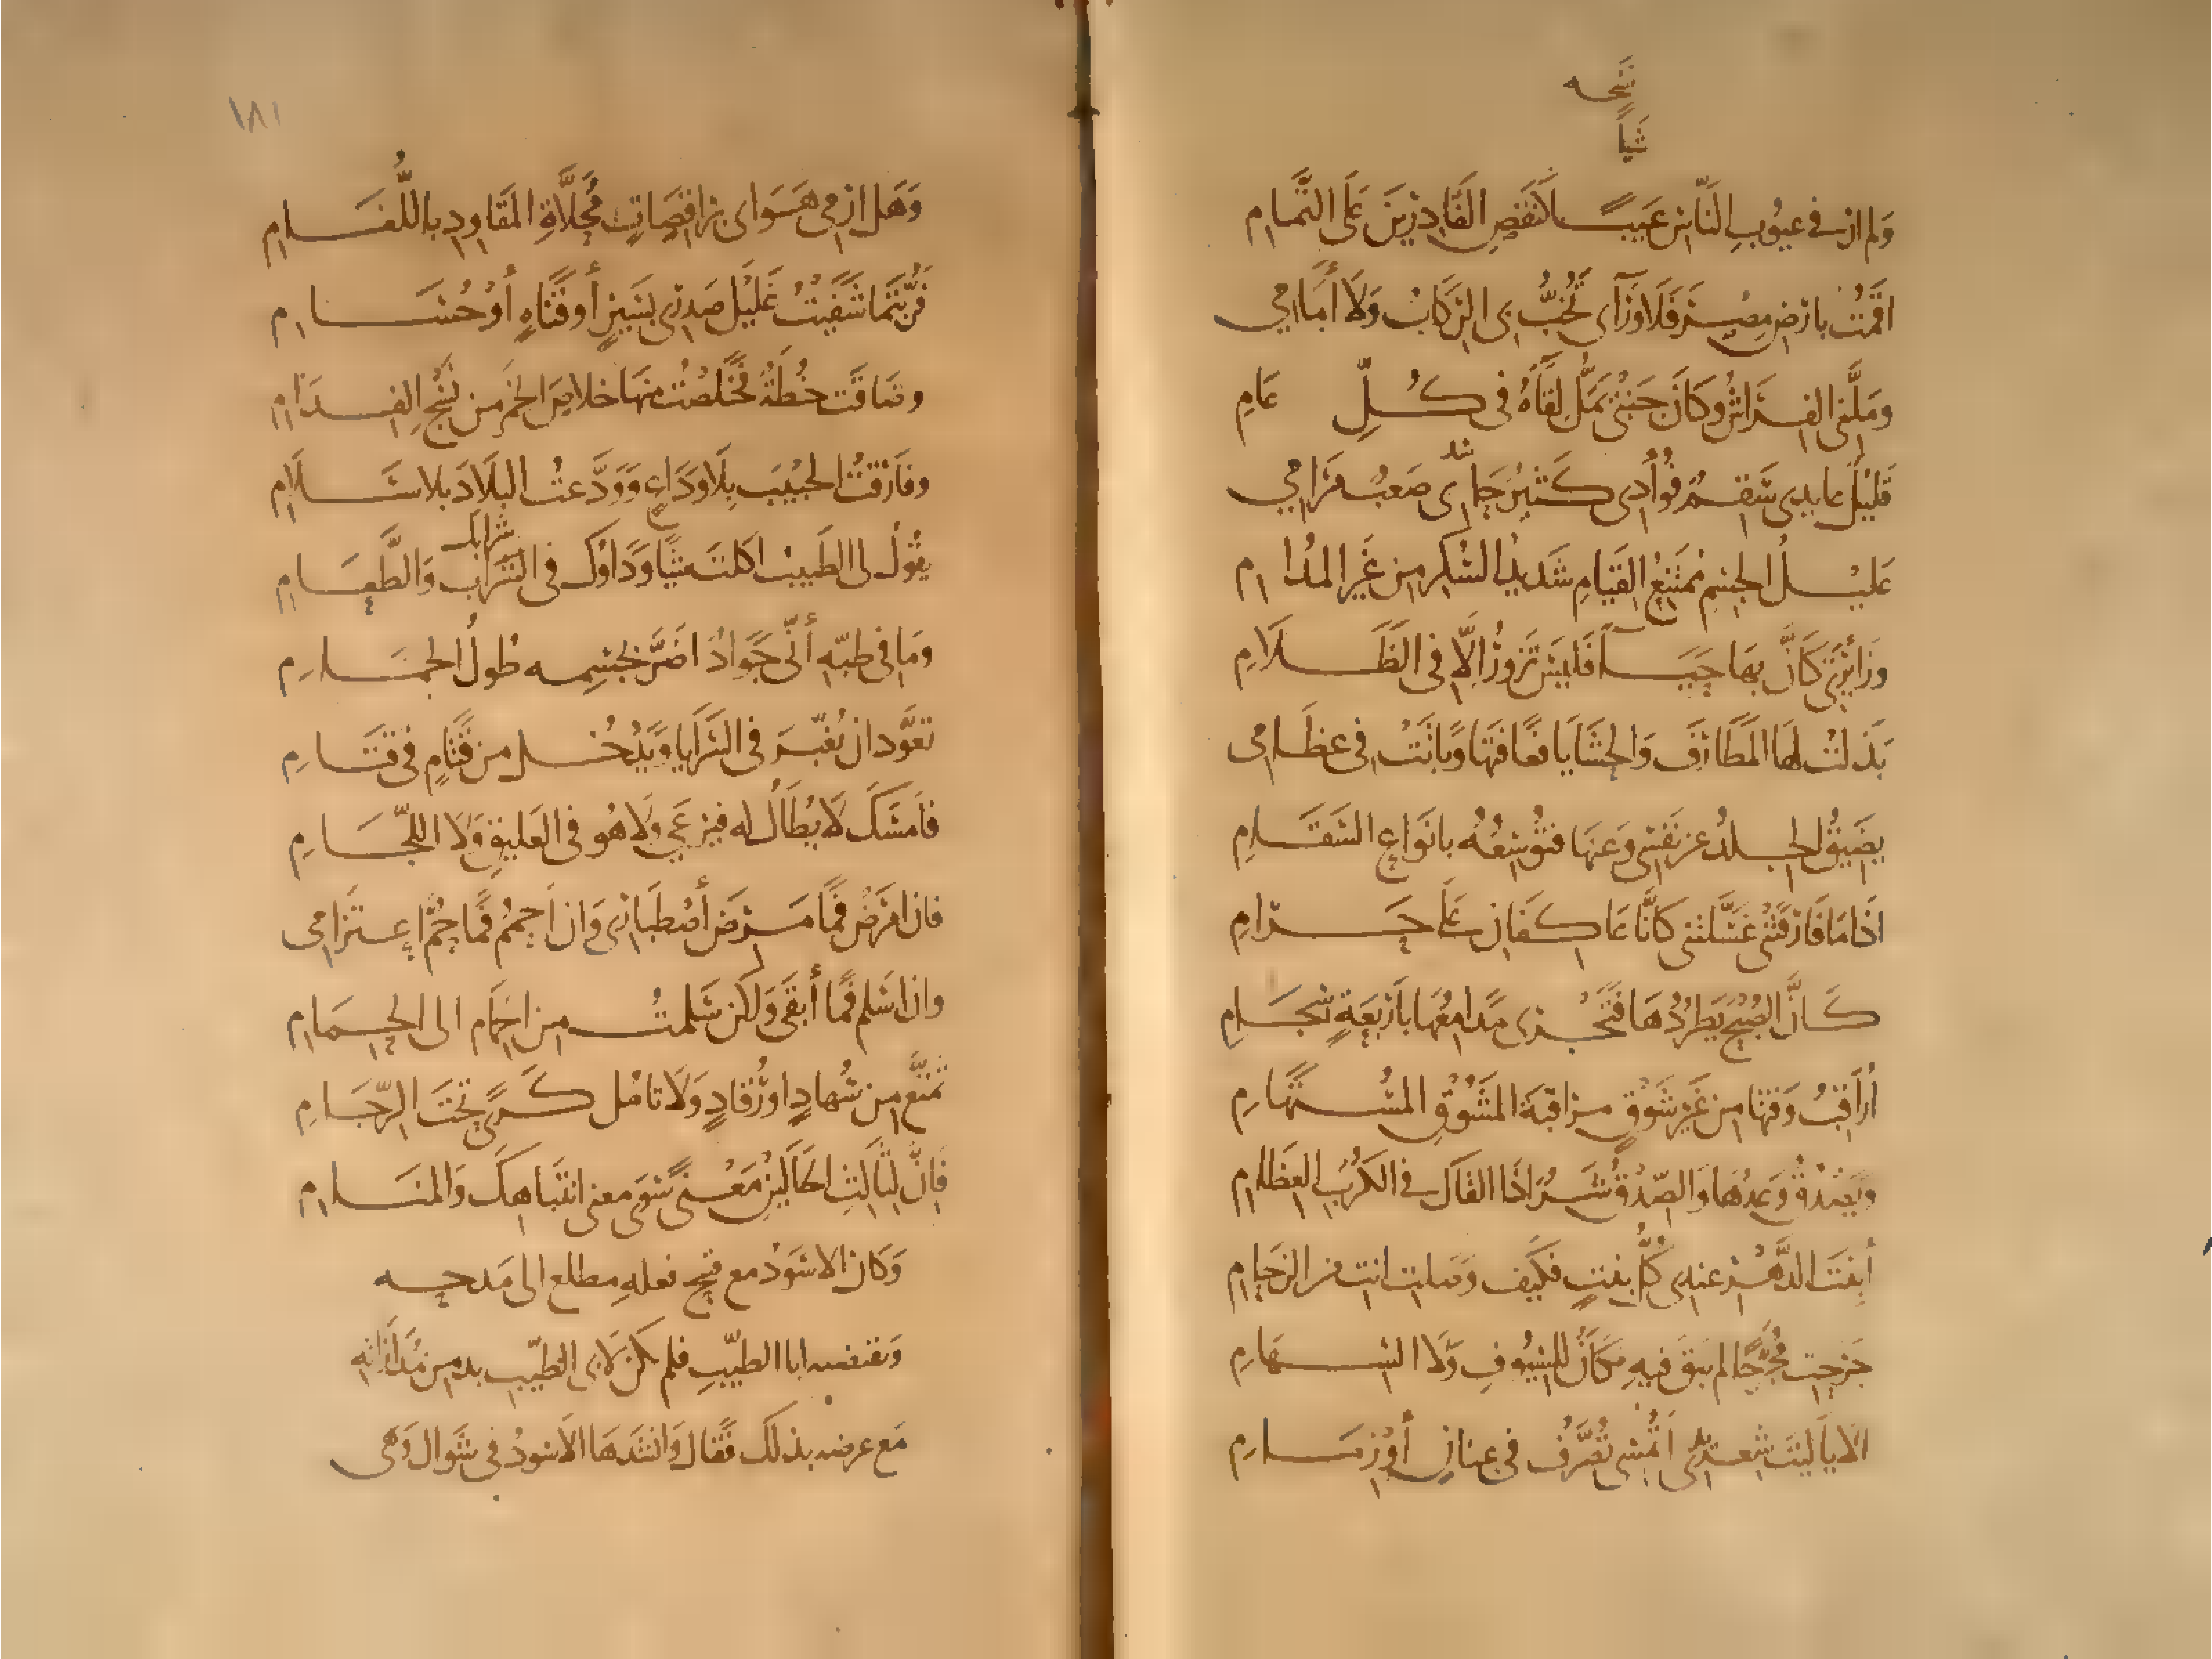 نسخه
شيأ
وَلم ارَ في عيُوبِ النَّاسِ عَيبًا كَنَقصِ القَادِرينَ عَلَى التَّمامِ
اقَمْتُ بارضِ مِصْرَ فَلَا وَرَآى تَخُبُّ بىَ الرّكابُ وَلَا أمَامِي
ومَلَّنِىَ الفِرَاشُ وَكَانَ جَنبىْ يَمَلُّ لِقَآءهُ فى كُلِّ عَامِ
قَليْلٌ عايدِى سَقِمٌ فُؤَادِى كَثيْرٌ حَاسدِى صَعبٌ مَرَامِي
عَليْلُ الجِسْمِ مُمتَنِعُ القيَامِ شَديدُ السُّكرِ مِن غَيرِ المُدامِ
وَزَائِرَتى كَانَّ بِهَا حَيَآءً فَليسَ تَزورُ اِلَّا فى الظَّلَامِ
بَذَلتُ لهَا المَطَارِفَ وَالحَشَايَا فعَافَتهَا وَبَاتَتْ فى عظَامى
يضَيقُ الجِلدُ عن نَفَسى وَعَنهَا فتُوْسِعُهُ بانوَاعِ السَّقَامِ
اذَا مَا فَارَقَتْنى غَسَّلتنى كَانَّا عَاكفَانِ عَلَى حَرَامِ
كَانَّ الصُّبْحَ يَطرُدُهَا فَتَجْرى مَدَامِعُهَا بَاَربَعَةٍ سجَامِ
أُرَاقِبُ وَقتَهَا مِن غَيرِ شَوْقٍ مراقبَةَ المَشُوْقِ المُسْتَهَامِ
وَيَصْدُقُ وَعدُهَا وَالصّدْقُ شَرٌّ اذَا القَاكَ في الكُرَبِ العِظَامِ
أبِنتَ الدَّهْرِ عندى كُلُّ بنتٍ فكَيفَ وَصلتِ انتِ من الزحَامِ
جَرَحتِ مُجَرَّحًا لم يَبقَ فيهِ مَكانٌ للسّيُوفِ وَلَا السّهَامِ
الَا يَا لَيتَ شِعرَ يَدِى أتُمْسى تَصَرَّفُ فى عِنَانٍ أوْ زِمَامِ
١٨١
وَهَل ارْمى هَوَاىَ بِرَاقِصَاتٍ مُحَلَّاةِ المَقَاوِدِ باللُّغَامِ
فَرُبَّتَمَا شَفَيتُ غَليْلَ صَدرِى بسَيرٍ أو قَنَاةٍ أوْ حُسَامِ
وضَاقَت خُطَّةٌ فَخَلَصْتُ مِنهَا خَلاصَ الخَمرِ من نَسْجِ الفِدَامِ
وفَارَقتُ الحَبيْبَ بِلَا وَدَاعٍ وَوَدَّعتُ البلَادَ بلا سَلَامِ
يقُوْلُ لى الطَبيبُ اكلتَ شيًا وَدَاؤكَ فى شَرابكَ وَالطَّعَامِ
ومَا فى طبّهِ أنّى جَوَادٌ اضَرَّ بجِسْمِه طُولُ الجمَامِ
تعَوَّدَ ان يُغَبّرَ فى السَّرَايَا وَيَدْخُلَ من قَتَامٍ فى قَتَامِ
فاَمسَكَ لَا يُطَالُ له فيَرعَي وَلَا هُو فى العَليقِ وَلَا اللّجَامِ
فان امْرَضْ فَمَا مَرِضَ أصْطبَارِى وَان اُحمَمْ فمَا حُمَّ اعتِزَامى
وان اَسْلم فَمَا أبقَى وَلكن سَلِمتُ مِن الحِمَامِ الى الحِمَامِ
تَمَتَّع مِن سُهادٍ او رُقادٍ وَلَا تامُل كَرًى تحْتَ الرّجَامِ
فَانَّ لثَالثِ الحَالَينِ مَعْنًى سِوَى معنى انتبَاهكَ وَالمنَامِ
وَكان الاسْوَدُ مع قبح فعلهِ مطلع الى مَدحه
وَيقتضيه ابا الطيّبِ فلم يكن لاَبى الطيّبِ بد من مُدَارَاته
مَع عرضه بذلكَ فقَالَ وَانشدَهَا الاَسودُ فى شوّال وَهى